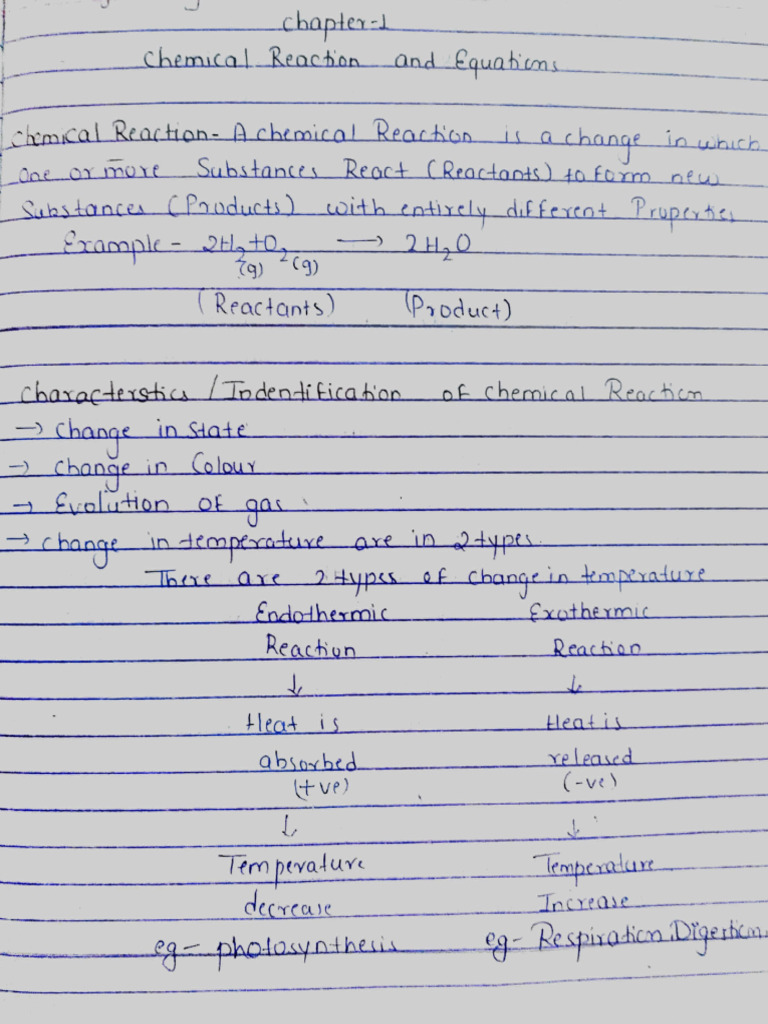 Chapter-1
Chemical Reaction and Equations
Chemical Reaction- A chemical Reaction is a change in which
one or more Substances React (Reactants) to form new
Substances (Products) with entirely different Properties
Example - 2H₂+O₂ → 2H₂O
(g) (g)
(Reactants) (Product)
Characterstics / Indentification of Chemical Reaction
→ Change in State
→ Change in Colour
→ Evolution of gas
→ Change in temperature are in 2 types.
There are 2 types of change in temperature
Endothermic Exothermic
Reaction Reaction
↓ ↓
Heat is Heat is
absorbed released
(+ve) (-ve)
↓ ↓
Temperature Temperature
decrease Increase
eg- photosynthesis eg- Respiration, Digestion.